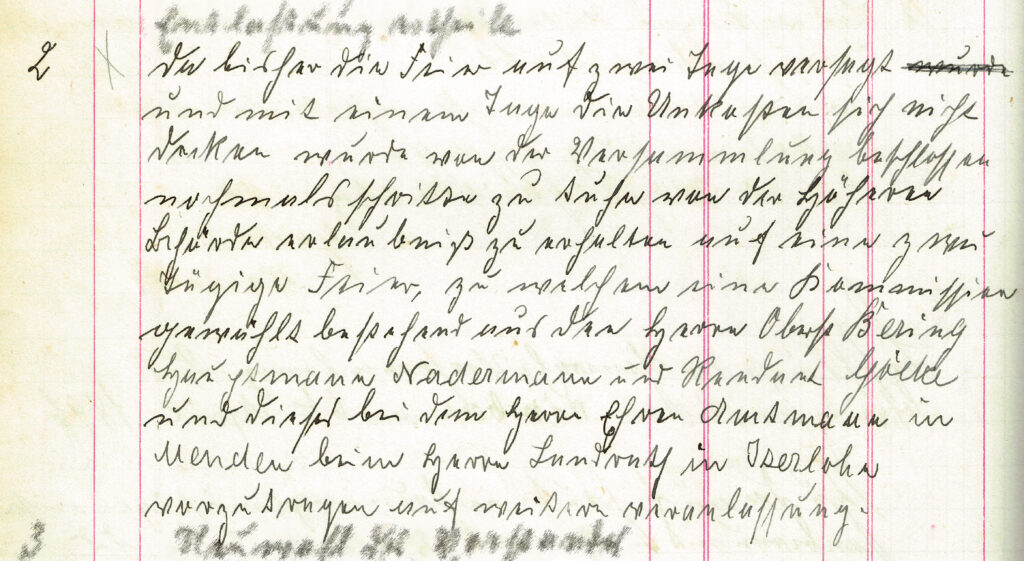 Entlastung ertheilt
2 Da bisher die Feier auf zwei Tage versagt wurde
und mit einem Tage die Unkosten sich nicht
decken wurde von der Versammlung beschlossen
nochmals schritte zu tuhn von der Höheren
Behörde erlaubniß zu erhalten auf eine zwei
tägige Feier, zu welchem eine Kommission
gewählt bestehend aus den Herrn Oberst Bering
Hauptmann Nadermann und Rendant Gölke
und dieses bei dem Herrn Ehren Amtmann in
Menden beim Herrn Landrath in Iserlohn
vorzutragen auf weitere veranlassung.
3 Neuwahl des Vorstandes